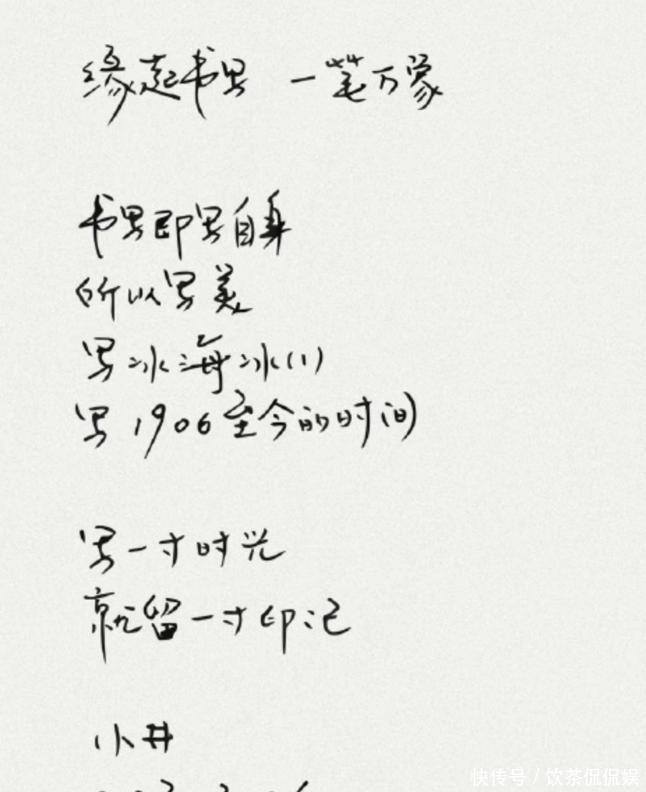 缘起书写 一笔万象
书写即写自身
所以写美
写冰海冰川
写1906至今的时间
写一寸时光
就留一寸印记
小井
快传号/饮茶侃侃娱